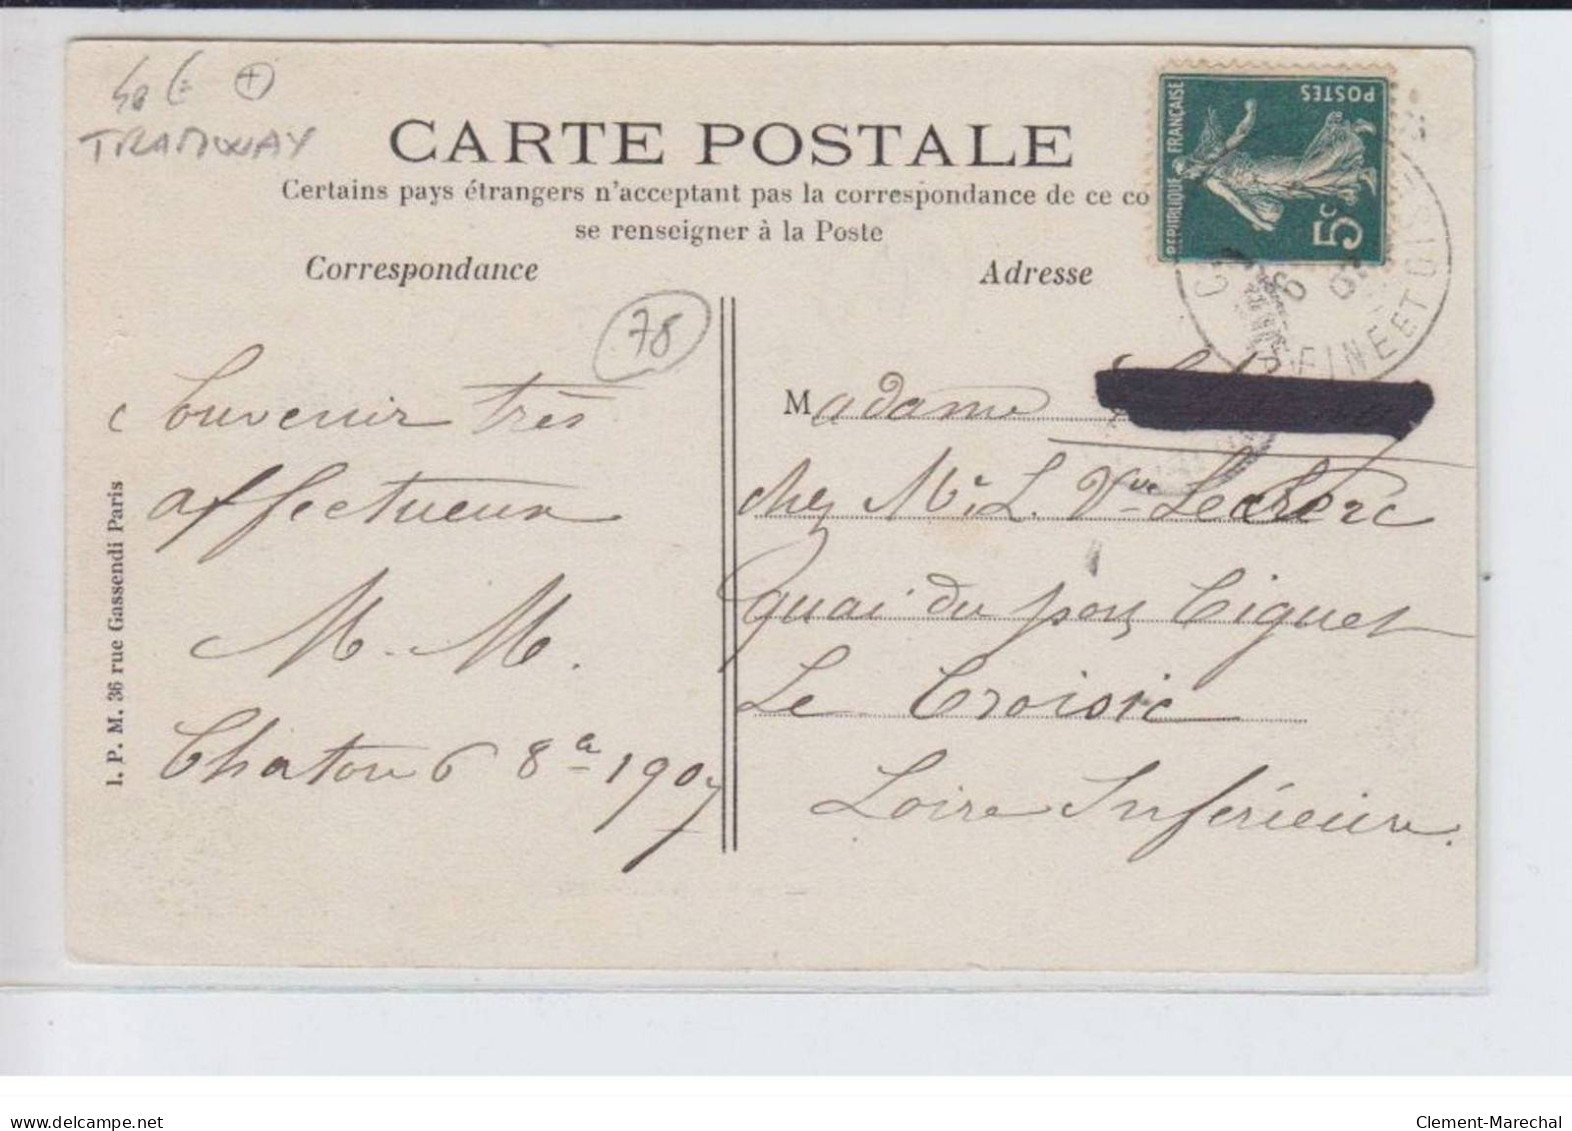 50 € +
TRAMWAY
CARTE POSTALE
Certains pays étrangers n'acceptant pas la correspondance de ce co
se renseigner à la Poste
Correspondance
Adresse
REPUBLIQUE FRANÇAISE
POSTES
5c
SEINE ET OISE
78
Souvenir très
affectueux
M. M.
Chatou 6 8 1907
Madame
chez Me L. Vve Leclerc
quai du port Ciguet
Le Croisic
Loire Inférieure.
I. P. M. 36 rue Gassendi Paris
delcampe.net
Clement-Marechal